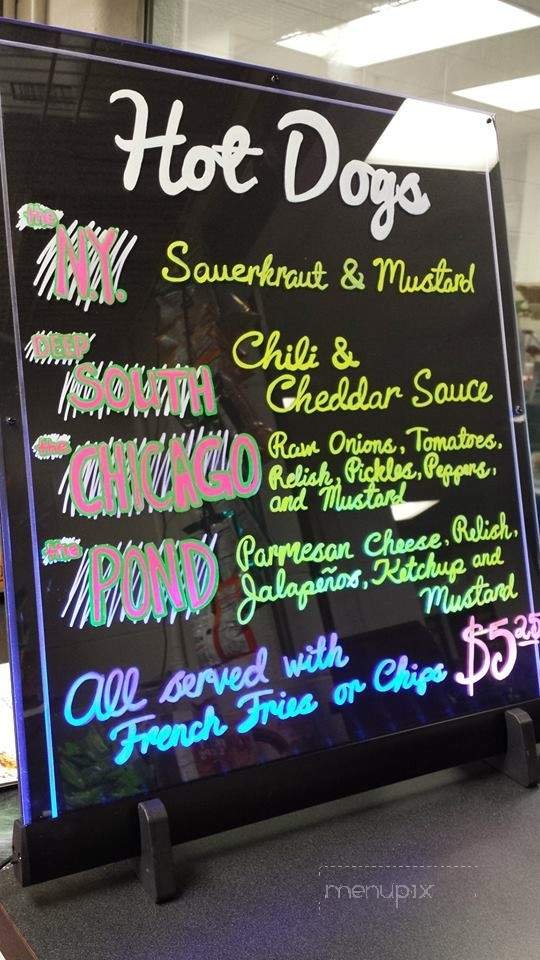 Hot Dogs
the
N.Y.
Sauerkraut & Mustard
DEEP
SOUTH
Chili &
Cheddar Sauce
the
CHICAGO
Raw Onions, Tomatoes,
Relish, Pickles, Peppers,
and Mustard
the
POND
Parmesan Cheese, Relish,
Jalapeños, Ketchup and
Mustard
All served with
French Fries or Chips
$5.25
menupix